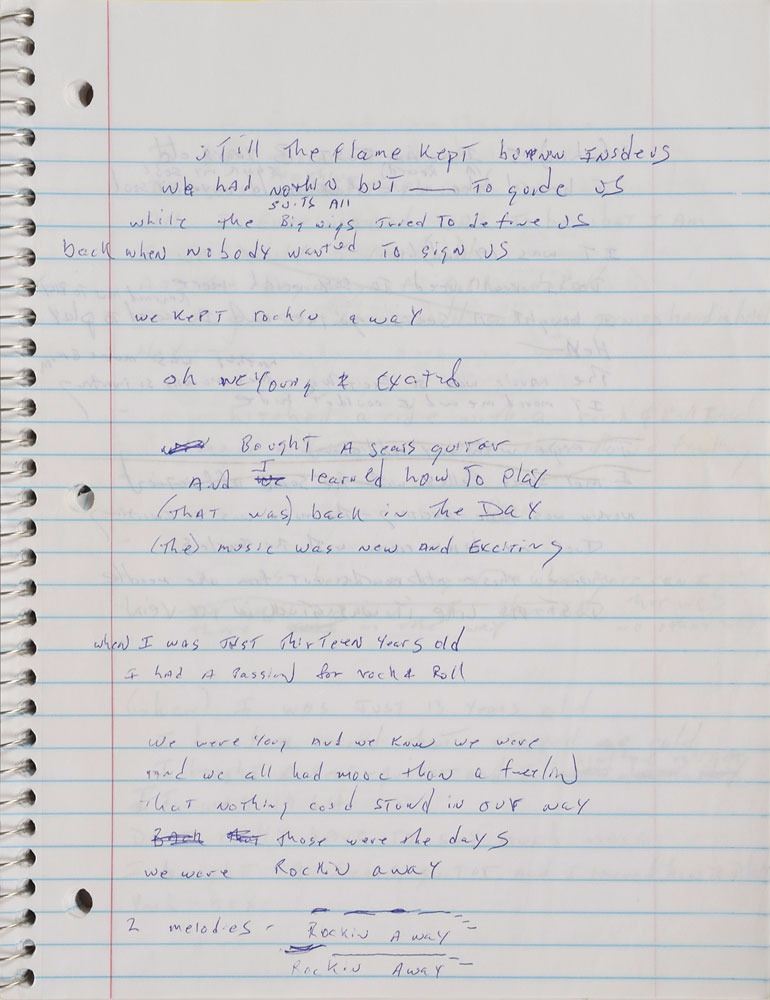 sTill The flame kept burnin Insde us
we had nothin but — To guide US
suits All
while the Big wigs Tried To define US
back when nobody wanted To sign US
we kepT rockin away
oh we Young & Excited
BoughT A sears guitar
And I learned how To Play
(THAT was) back in The DAY
(the) music was new AND ExciTiNg
when I was JUST ThirTeen Years old
I had A Passion for rock & Roll
We were Young And we Knew we were
and we all had more than a feelin
that nothing could STand in our way
Those were the days
we were Rockin away
2 melodies - Rockin A way
Rockin Away